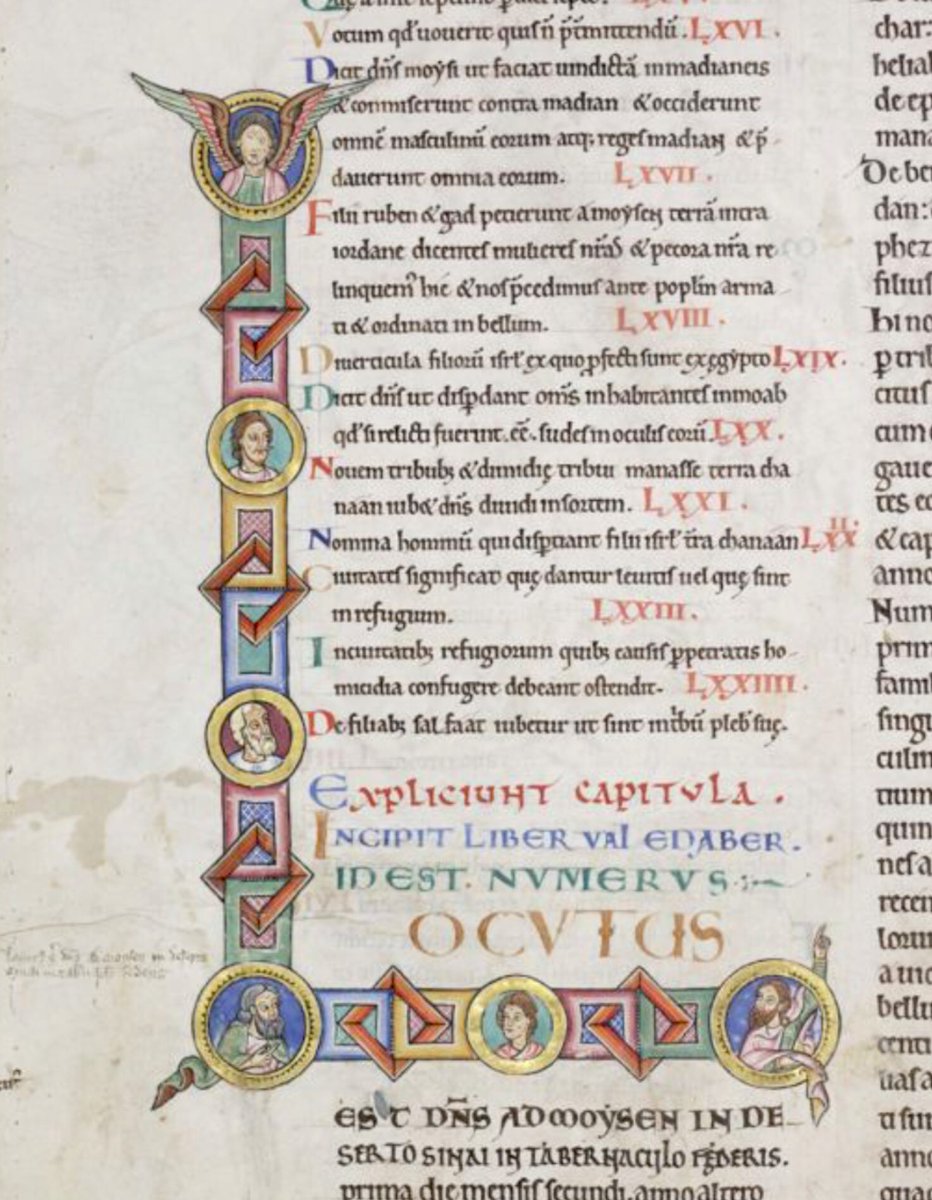 Votum qd̄ uouerit quis n̄ p̄t̄mittendū. LXVI.
Dicit dn̄s moẏsi ut faciat uindictā in madianeis
& conmiserunt contra madian & occiderunt
omnē masculinū eorum atq; reges madian & p̄
dauerunt omnia eorum. LXVII.
Filii ruben & gad petierunt a moẏsen terrā intra
iordane dicentes mulieres nr̄as & pecora nr̄a re
linquem᷒ hic & nos p̄cedimus ante poplm̄ arma
ti & ordinati in bellum. LXVIII.
Diuerticula filiorū isrl̄ ex quo ꝓfecti sunt ex ęgẏpto LXIX.
Dicit dn̄s ut disꝑdant om̄s inhabitantes in moab
qd̄ si relicti fuerint. eē. sudes in oculis eorū LXX.
Nouem tribub; & dimidię tribui manasse terra cha
naan iub& dn̄s diuidi in sortem. LXXI.
Nomina hominū qui disꝑtiant filii isrl̄ tr̄a chanaan LXXII.
Ciuitates significat quę dantur leuitis uel quę sint
in refugium. LXXIII.
In ciuitatib; refugiorum quib; causis ꝑpetratis ho
micidia confugere debeant ostendit. LXXIIII.
De filiab; salfaat iubetur ut sint plebis suę.
EXPLICIUNT CAPITULA.
INCIPIT LIBER VAIEDABER.
ID EST. NVMERVS
LOCUTUS
EST DN̄S AD MOẎSEN IN DE
SERTO SINAI IN TABERNACULO FĘDERIS.
prima die mensis secundi. anno altero
char
helial
de ep
mana
De be
dan:
phez
filius
hi no
ꝑ tri
citus
cum
gaue
tes e
& cap
anno
Num
prim
famil
singu
culm
tium
quin
nes a
recen
loru
a uic
bellu
centi
uasa
ti sun
anno